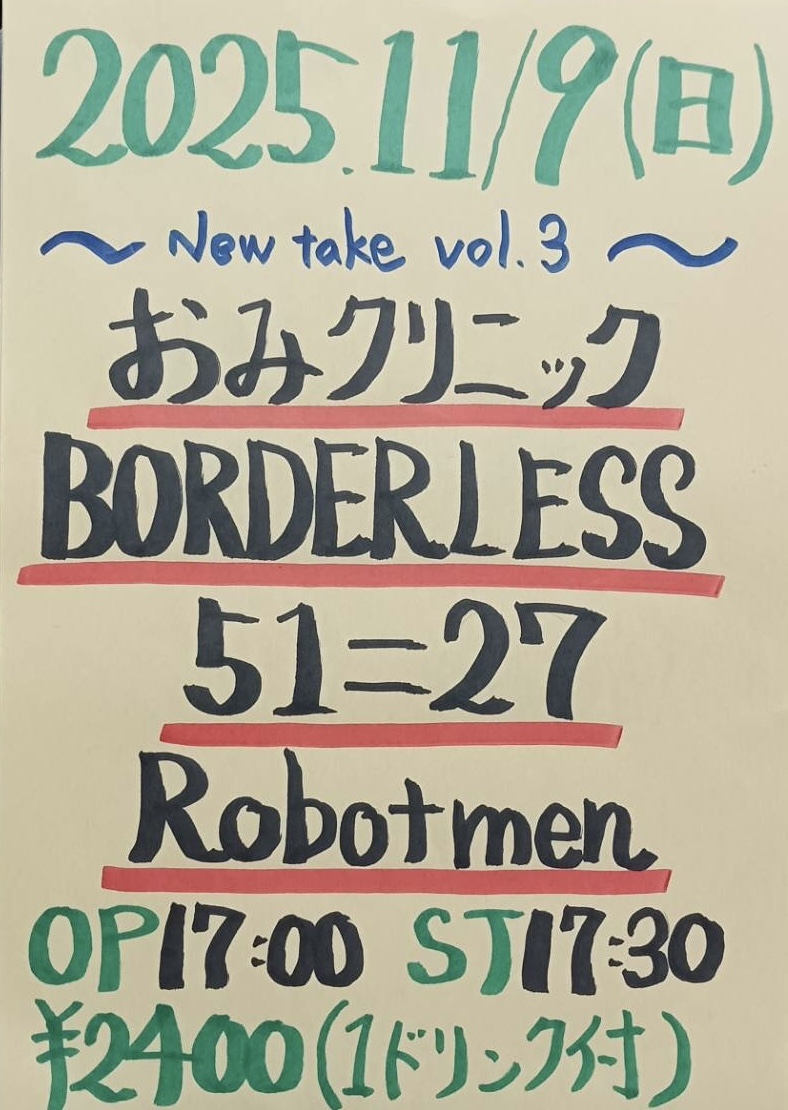 2025.11/9(日)
〜New take vol.3〜
おみクリニック
BORDERLESS
51=27
Robotmen
OP17:00 ST17:30
¥2400(1ドリンク付)